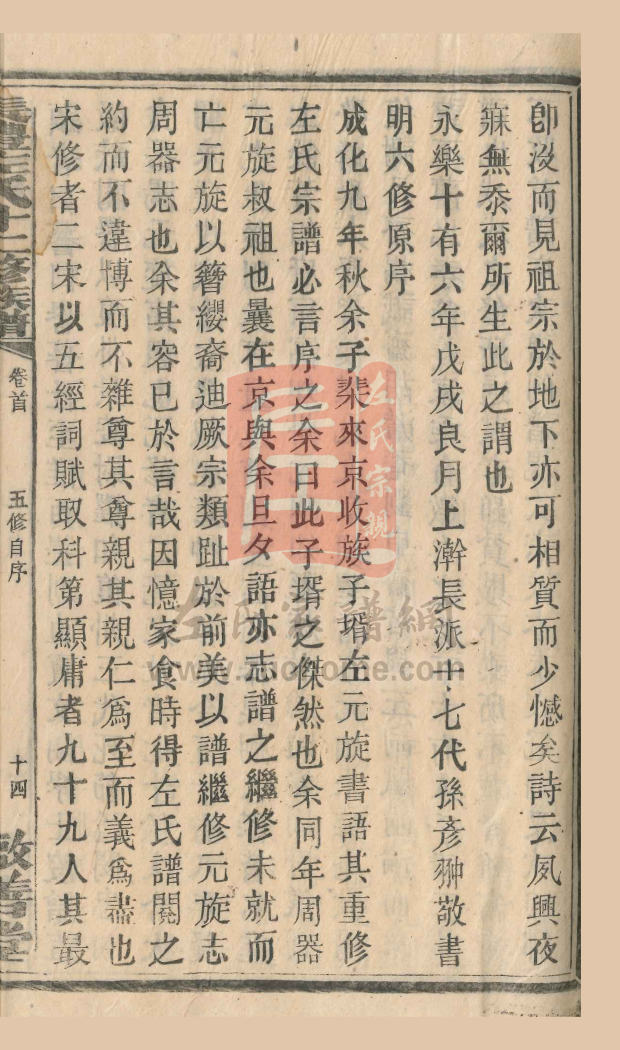 卽沒而見祖宗於地下亦可相質而少憾矣詩云夙興夜
寐無忝爾所生此之謂也
永樂十有六年戊戌良月上澣長派十七代孫彥翀敬書
明六修原序
成化九年秋余子棐來京收族子壻左元旋書語其重修
左氏宗譜必言序之余曰此子壻之傑然也余同年周器
元旋叔祖也曩在京與余旦夕語亦志譜之繼修未就而
亡元旋以簪纓裔迪厥宗類趾於前美以譜繼修元旋志
周器志也余其容已於言哉因憶家食時得左氏譜閱之
約而不違博而不雜尊其尊親其親仁爲至而義爲盡也
宋修者二宋以五經詞賦取科第顯庸者九十九人其最
左氏十二修族譜
卷首
五修自序
十四
敦善堂
左氏宗親
左氏家譜網